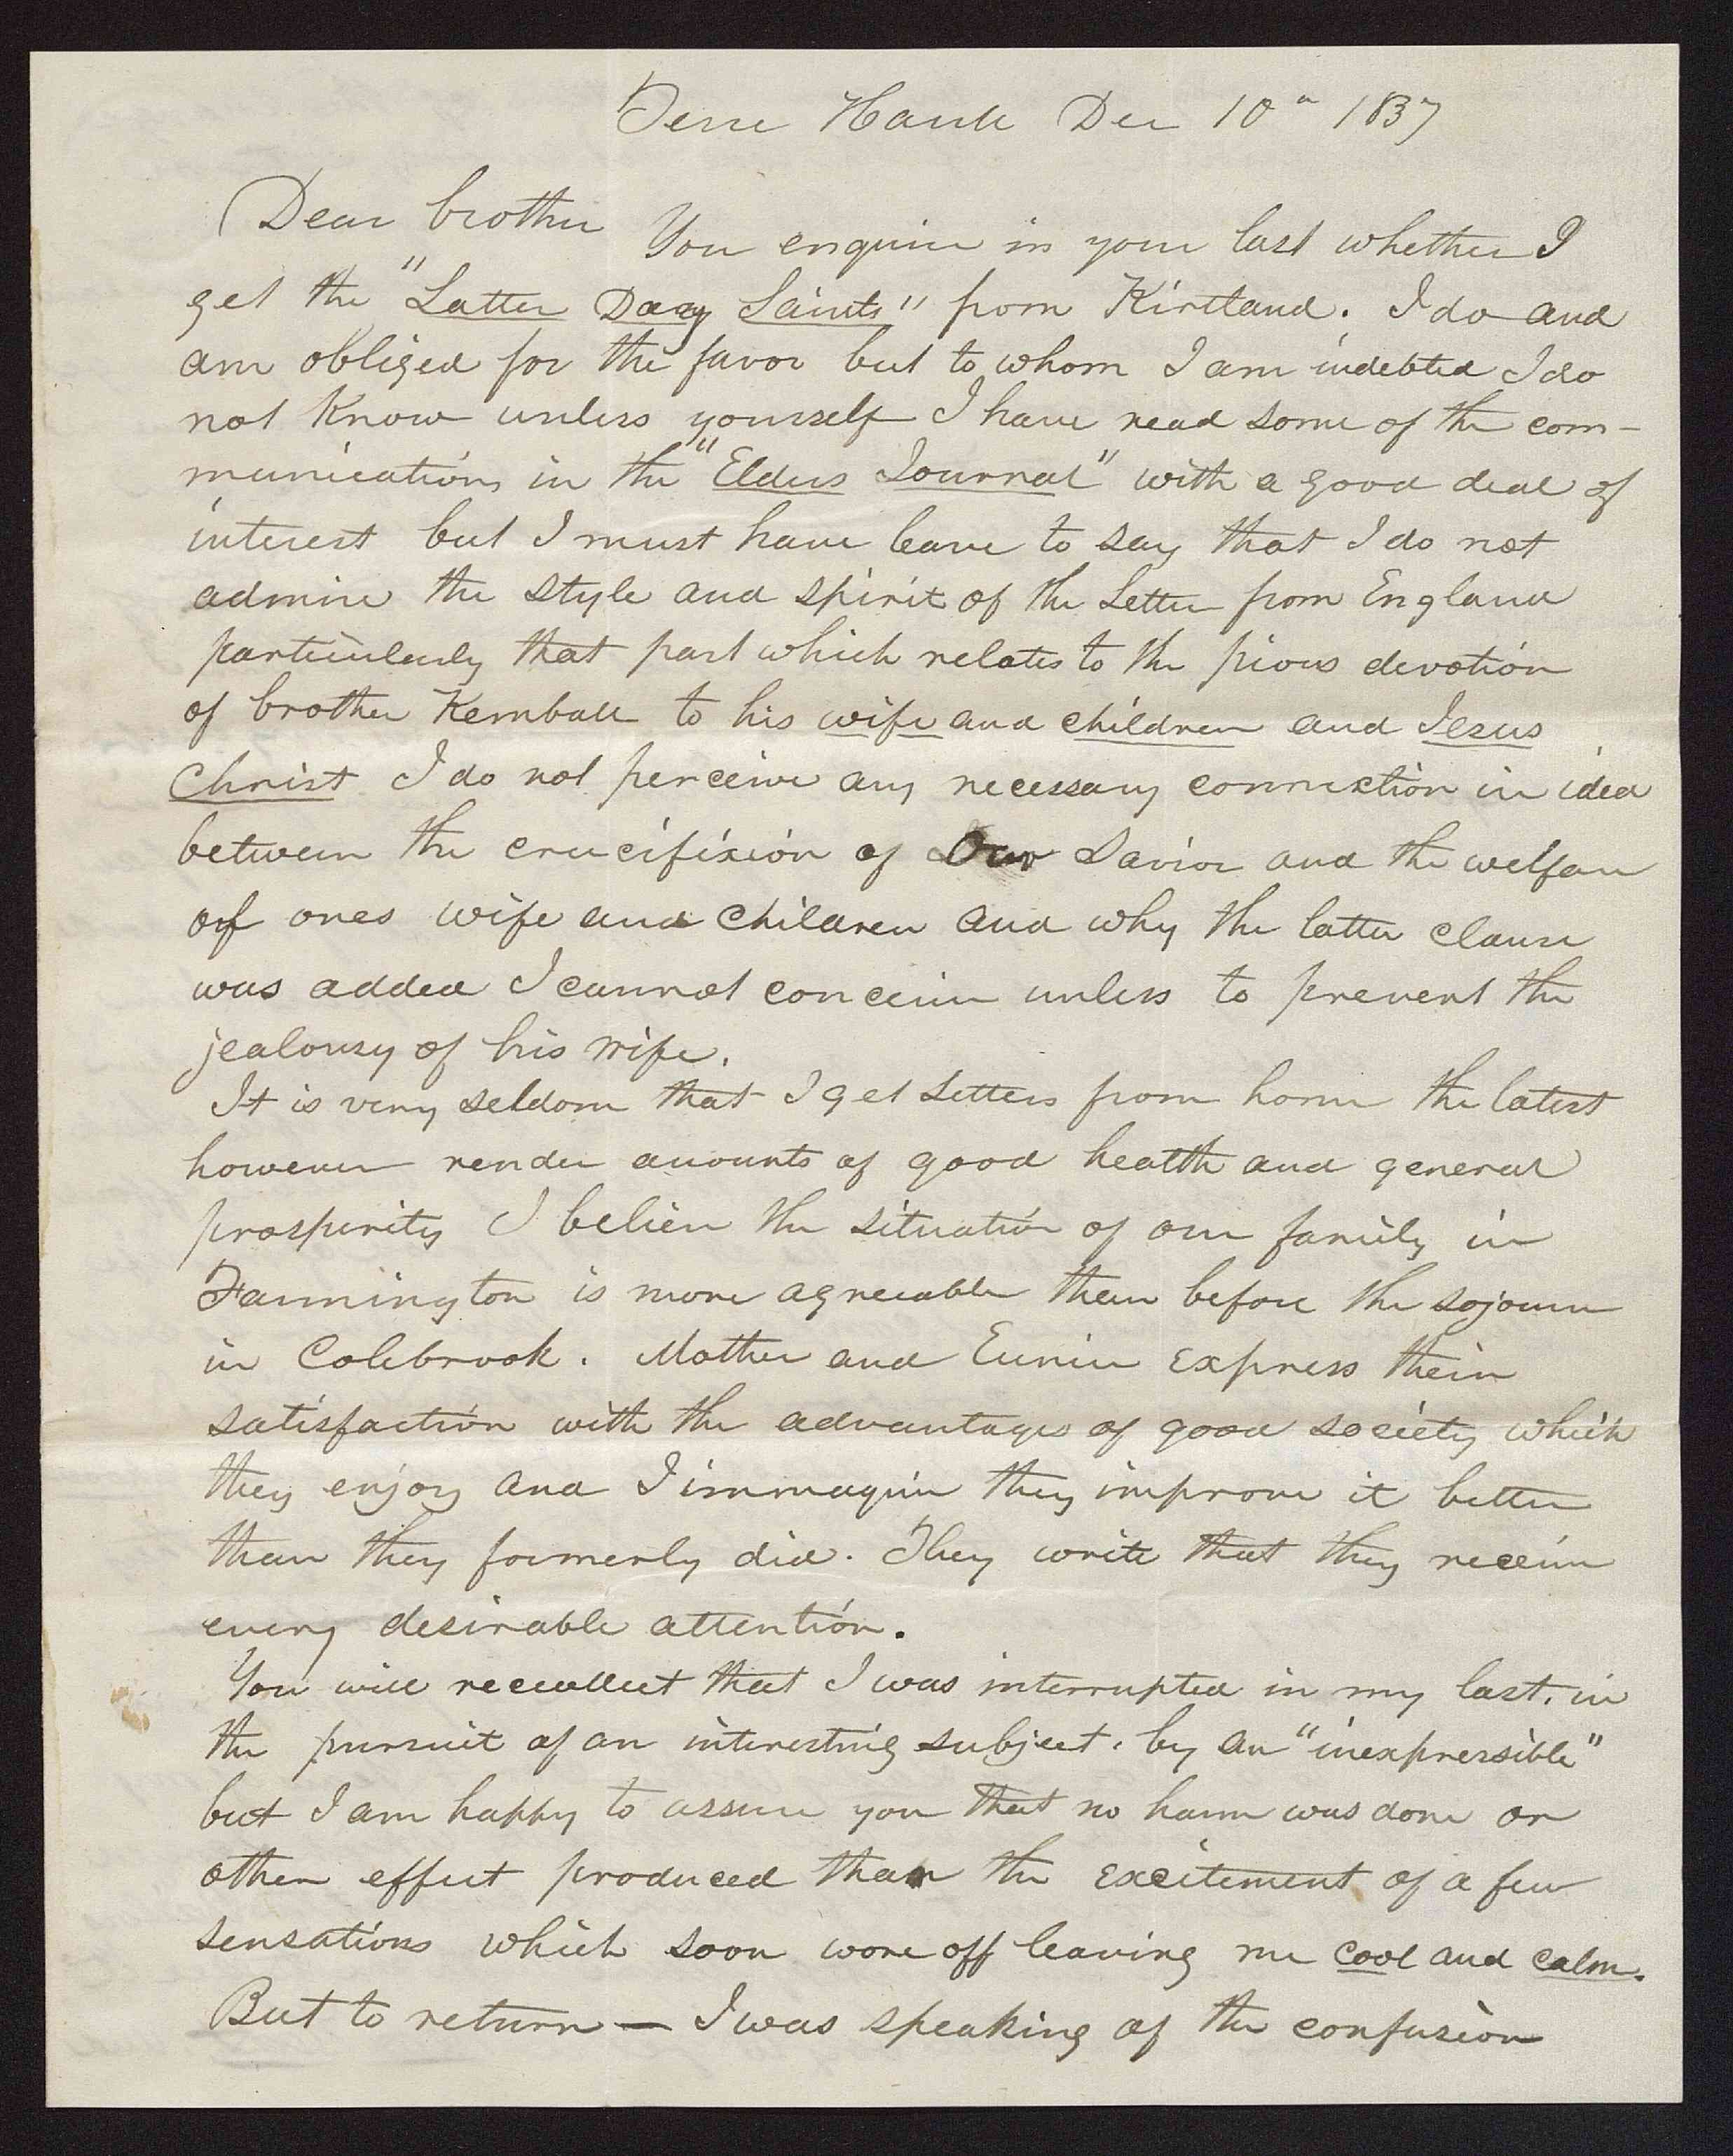 Terre Haute Dec 10th 1837
Dear brother You enquire in your last whether I
get the "Latter Day Saints" from Kirtland. I do and
am obliged for the favor but to whom I am indebted I do
not know unless yourself I have read some of the com-
munications in the "Elders Journal" with a good deal of
interest but I must have leave to say that I do not
admire the style and spirit of the Letter from England
particularly that part which relates to the pious devotion
of brother Kemball to his wife and children and Jesus
Christ I do not perceive any necessary connection in idea
between the crucifixion of Our Savior and the welfare
of ones wife and children and why the latter clause
was added I cannot conceive unless to prevent the
jealousy of his wife.
It is very seldom that I get Letters from home the latest
however render acounts of good health and general
prosperity I believe the situation of our family in
Farmington is more agreeable than before the sojourn
in Colebrook. Mother and Eunice express their
satisfaction with the advantages of good society which
they enjoy and I immagine they improve it better
than they formerly did. They write that they receive
every desirable attention.
You will reccollect that I was interrupted in my last, in
the pursuit of an interesting subject, by an "inexpressible"
but I am happy to assure you that no harm was done or
other effect produced than the excitement of a few
sensations which soon wore off leaving me cool and calm.
But to return — I was speaking of the confusion